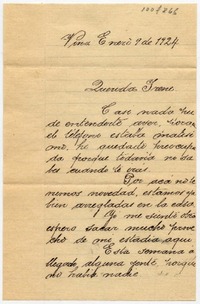 1001866
Viña Enero 9 de 1924.
Querida Irene:
Casi nada pu-
de entenderte ayer, porque
el teléfono estaba malísi-
mo, he quedado preocupa-
da porque todavía no sa-
bes cuando te vas.
Por acá no te-
nemos novedad, estamos ya
bien arregladas en la casa.
Yo me siento otra
espero sacar mucho prove-
cho de mi estadía aquí.
Esta semana a
llegado alguna gente, porque
no había nadie